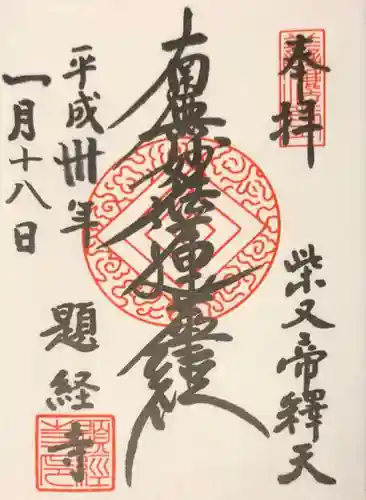 奉拝
柴又帝釋天
南無妙法蓮華経
平成卅年
一月十八日
題経寺